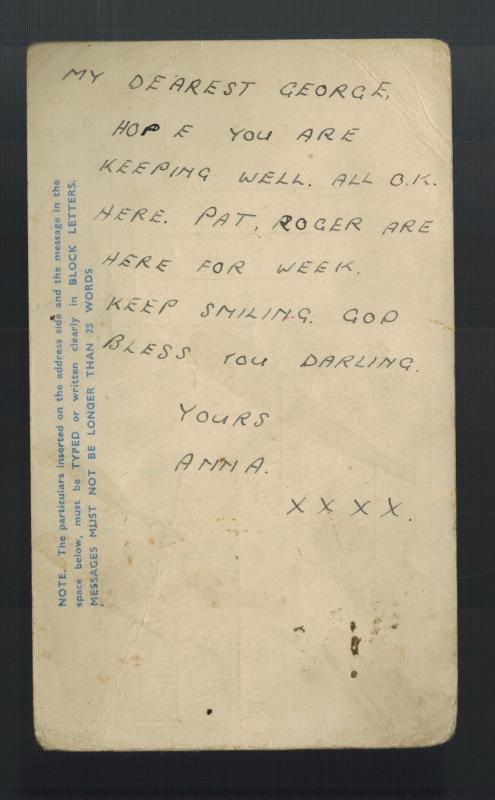 MY DEAREST GEORGE,
HOPE YOU ARE
KEEPING WELL. ALL O.K.
HERE. PAT, ROGER ARE
HERE FOR WEEK.
KEEP SMILING. GOD
BLESS YOU DARLING.
YOURS
ANNA.
X X X X.
NOTE. The particulars inserted on the address side and the message in the
space below, must be TYPED or written clearly in BLOCK LETTERS.
MESSAGES MUST NOT BE LONGER THAN 25 WORDS